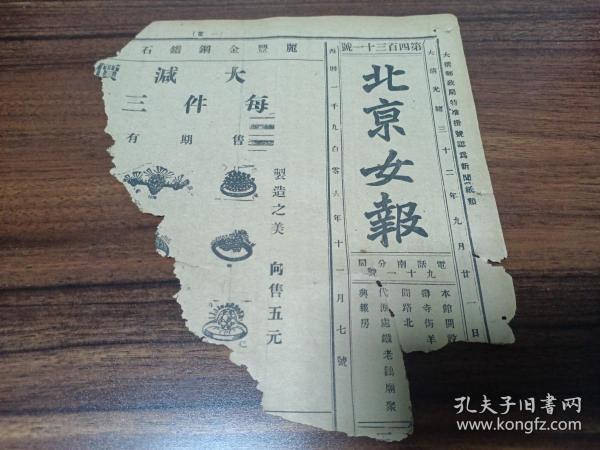 大清郵政局特准掛號認爲新聞紙類
大清光緒三十二年九月廿一日
第四百三十一號
北京女報
電話南分局
九十一號
本館開設
壽寺街羊
間路北
代派處鐵老鸛廟聚
興報房
西曆一千九百零六年十一月七號
麗豐金鋼鑽石
大減價
每件三
售期有
製造之美 向售五元
孔夫子旧书网
www.kongfz.com